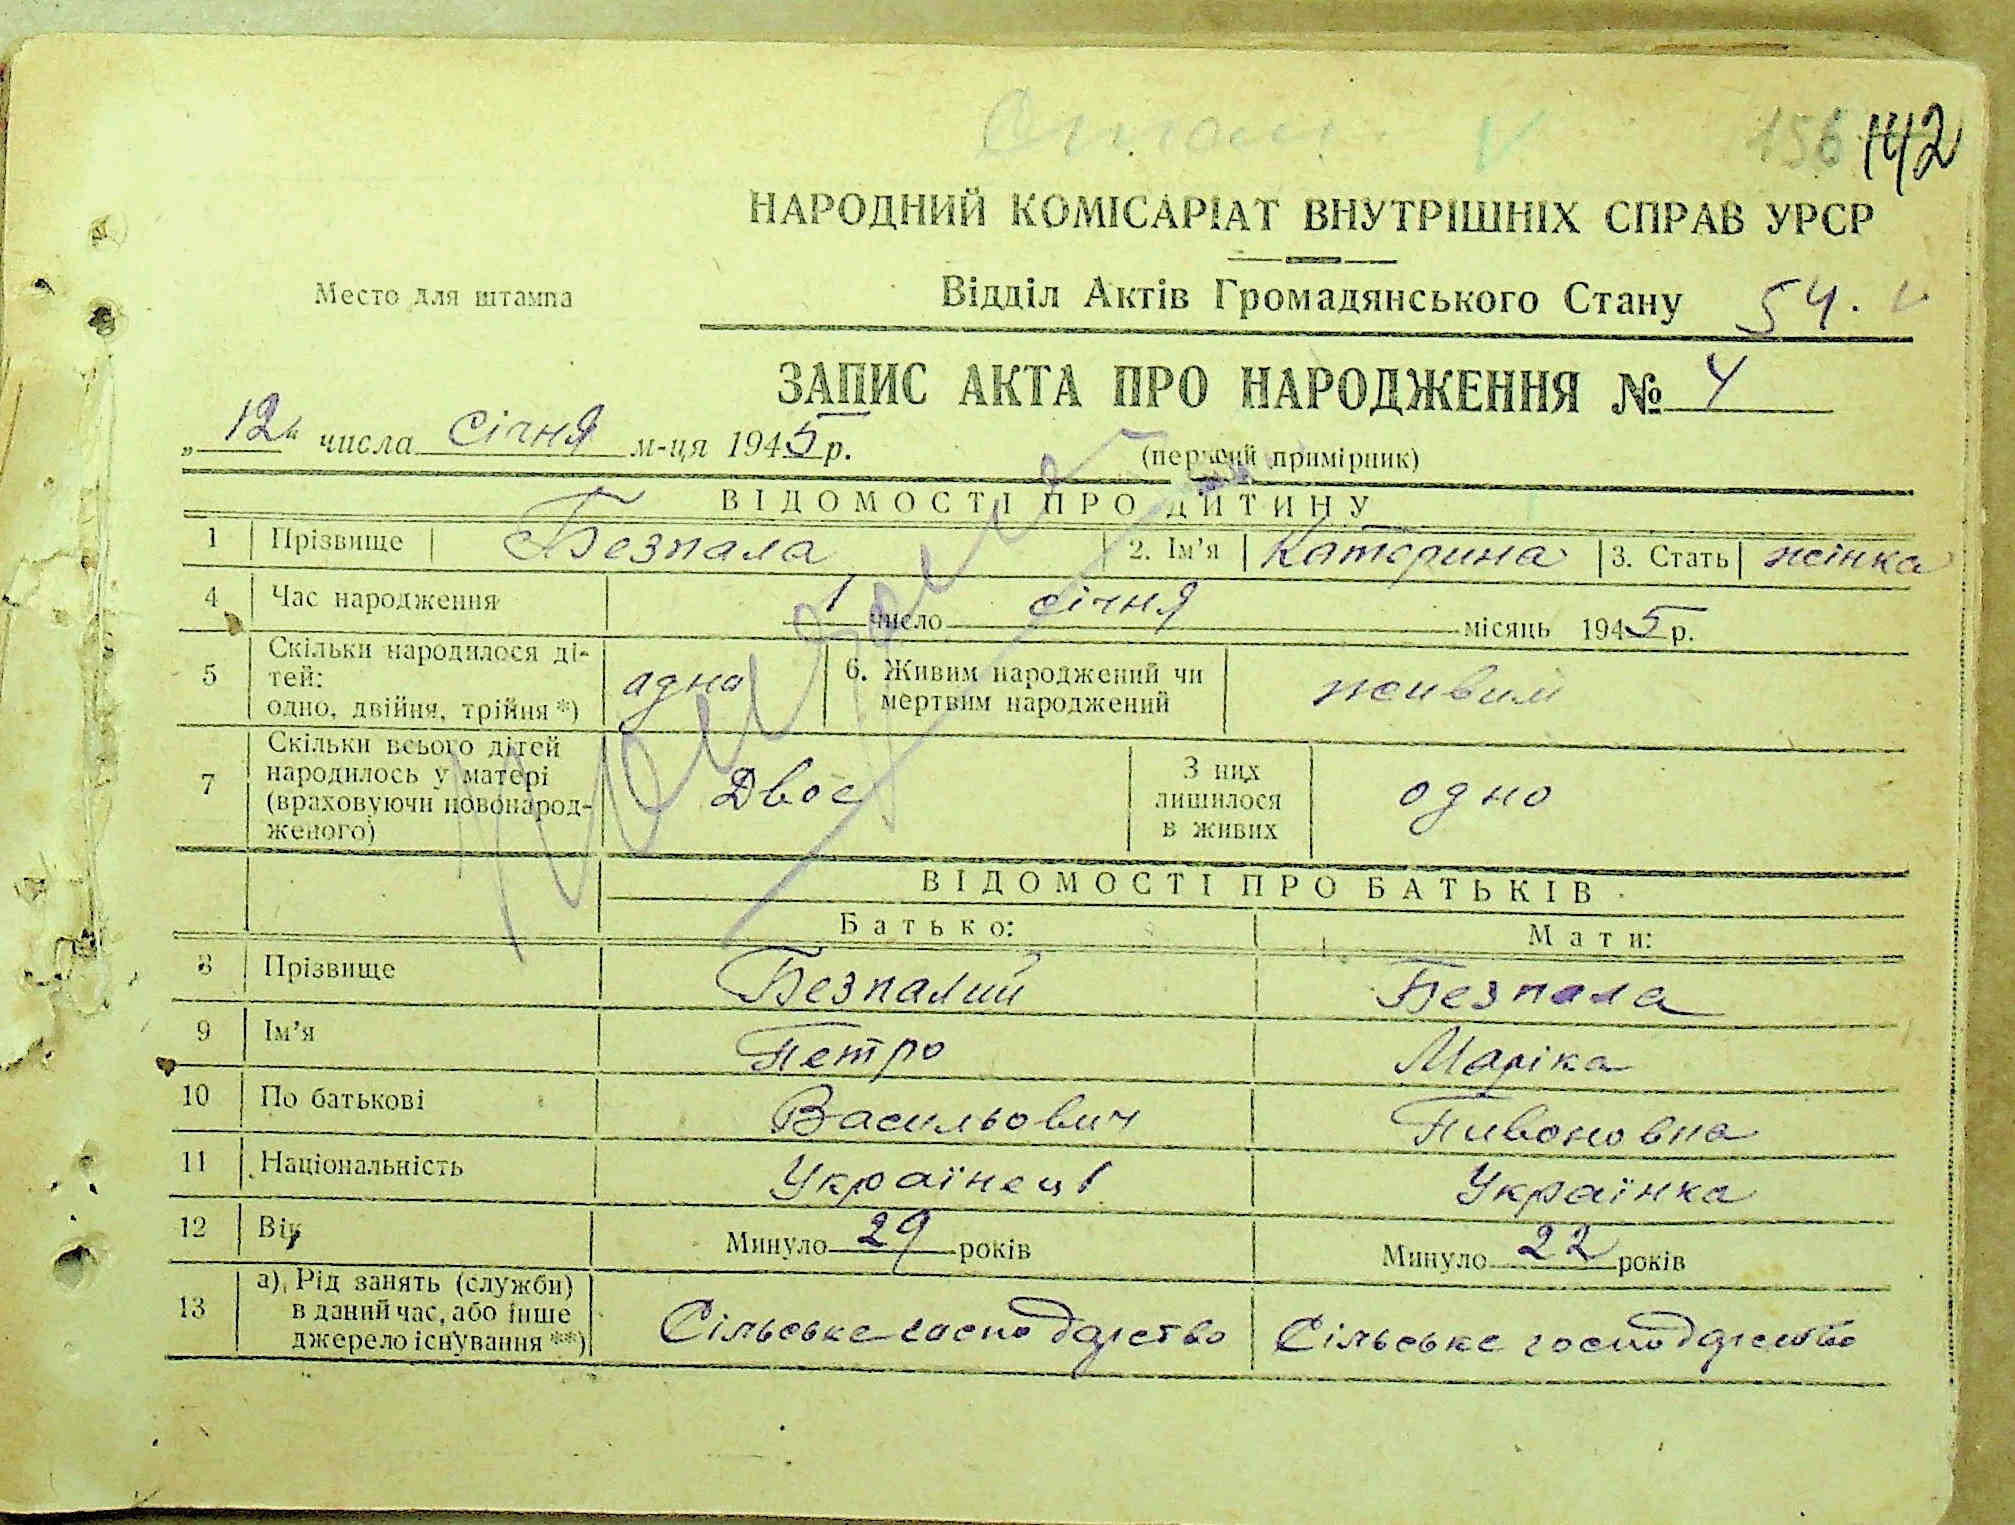 156 142
НАРОДНИЙ КОМІСАРІАТ ВНУТРІШНІХ СПРАВ УРСР
Место для штампа
Відділ Актів Громадянського Стану 54.
ЗАПИС АКТА ПРО НАРОДЖЕННЯ № 4
„12" числа січня м-ця 1945 р.
(первий примірник)
ВІДОМОСТІ ПРО ДИТИНУ
1 Прізвище Безпала 2. Ім'я Катерина 3. Стать жінка
4 Час народження 1 число січня місяць 1945 р.
5 Скільки народилося ді-
тей:
одно, двійня, трійня *) одна 6. Живим народжений чи
мертвим народжений живим
7 Скільки всього дітей
народилось у матері
(враховуючи новонарод-
женого) Двоє З них
лишилося
в живих одно
ВІДОМОСТІ ПРО БАТЬКІВ
Батько: Мати:
8 Прізвище Безпалий Безпала
9 Ім'я Петро Маріка
10 По батькові Васильович
11 Національність Українець Українка
12 Вік Минуло 29 років Минуло 22 років
13 а) Рід занять (служби)
в даний час, або інше
джерело існування **) Сільське господарство Сільське господарство